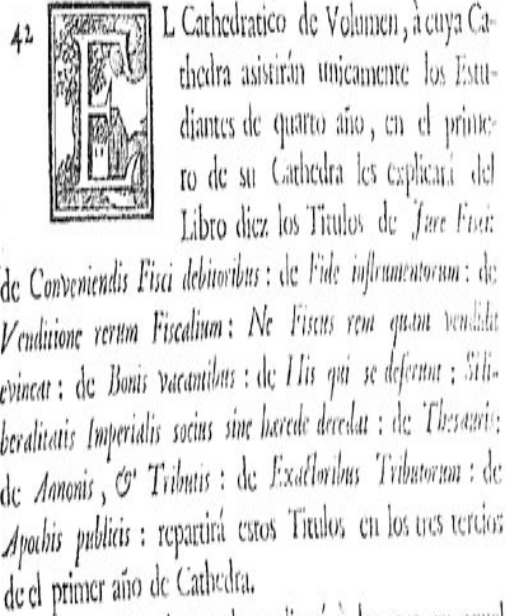 42 EL Cathedratico de Volumen, à cuya Ca-
thedra asistirán unicamente los Estu-
diantes de quarto año, en el prime-
ro de su Cathedra les explicará del
Libro diez los Titulos de Jure Fisci:
de Conveniendis Fisci debitoribus: de Fide instrumentorum: de
Venditione rerum Fiscalium: Ne Fiscus rem quam vendidit
evincat: de Bonis vacantibus: de His qui se deferunt: Si li-
beralitatis Imperialis socius sine hærede decedat: de Thesauris:
de Annonis, & Tributis: de Exactoribus Tributorum: de
Apochis publicis: repartirá estos Titulos en los tres tercios
de el primer año de Cathedra.